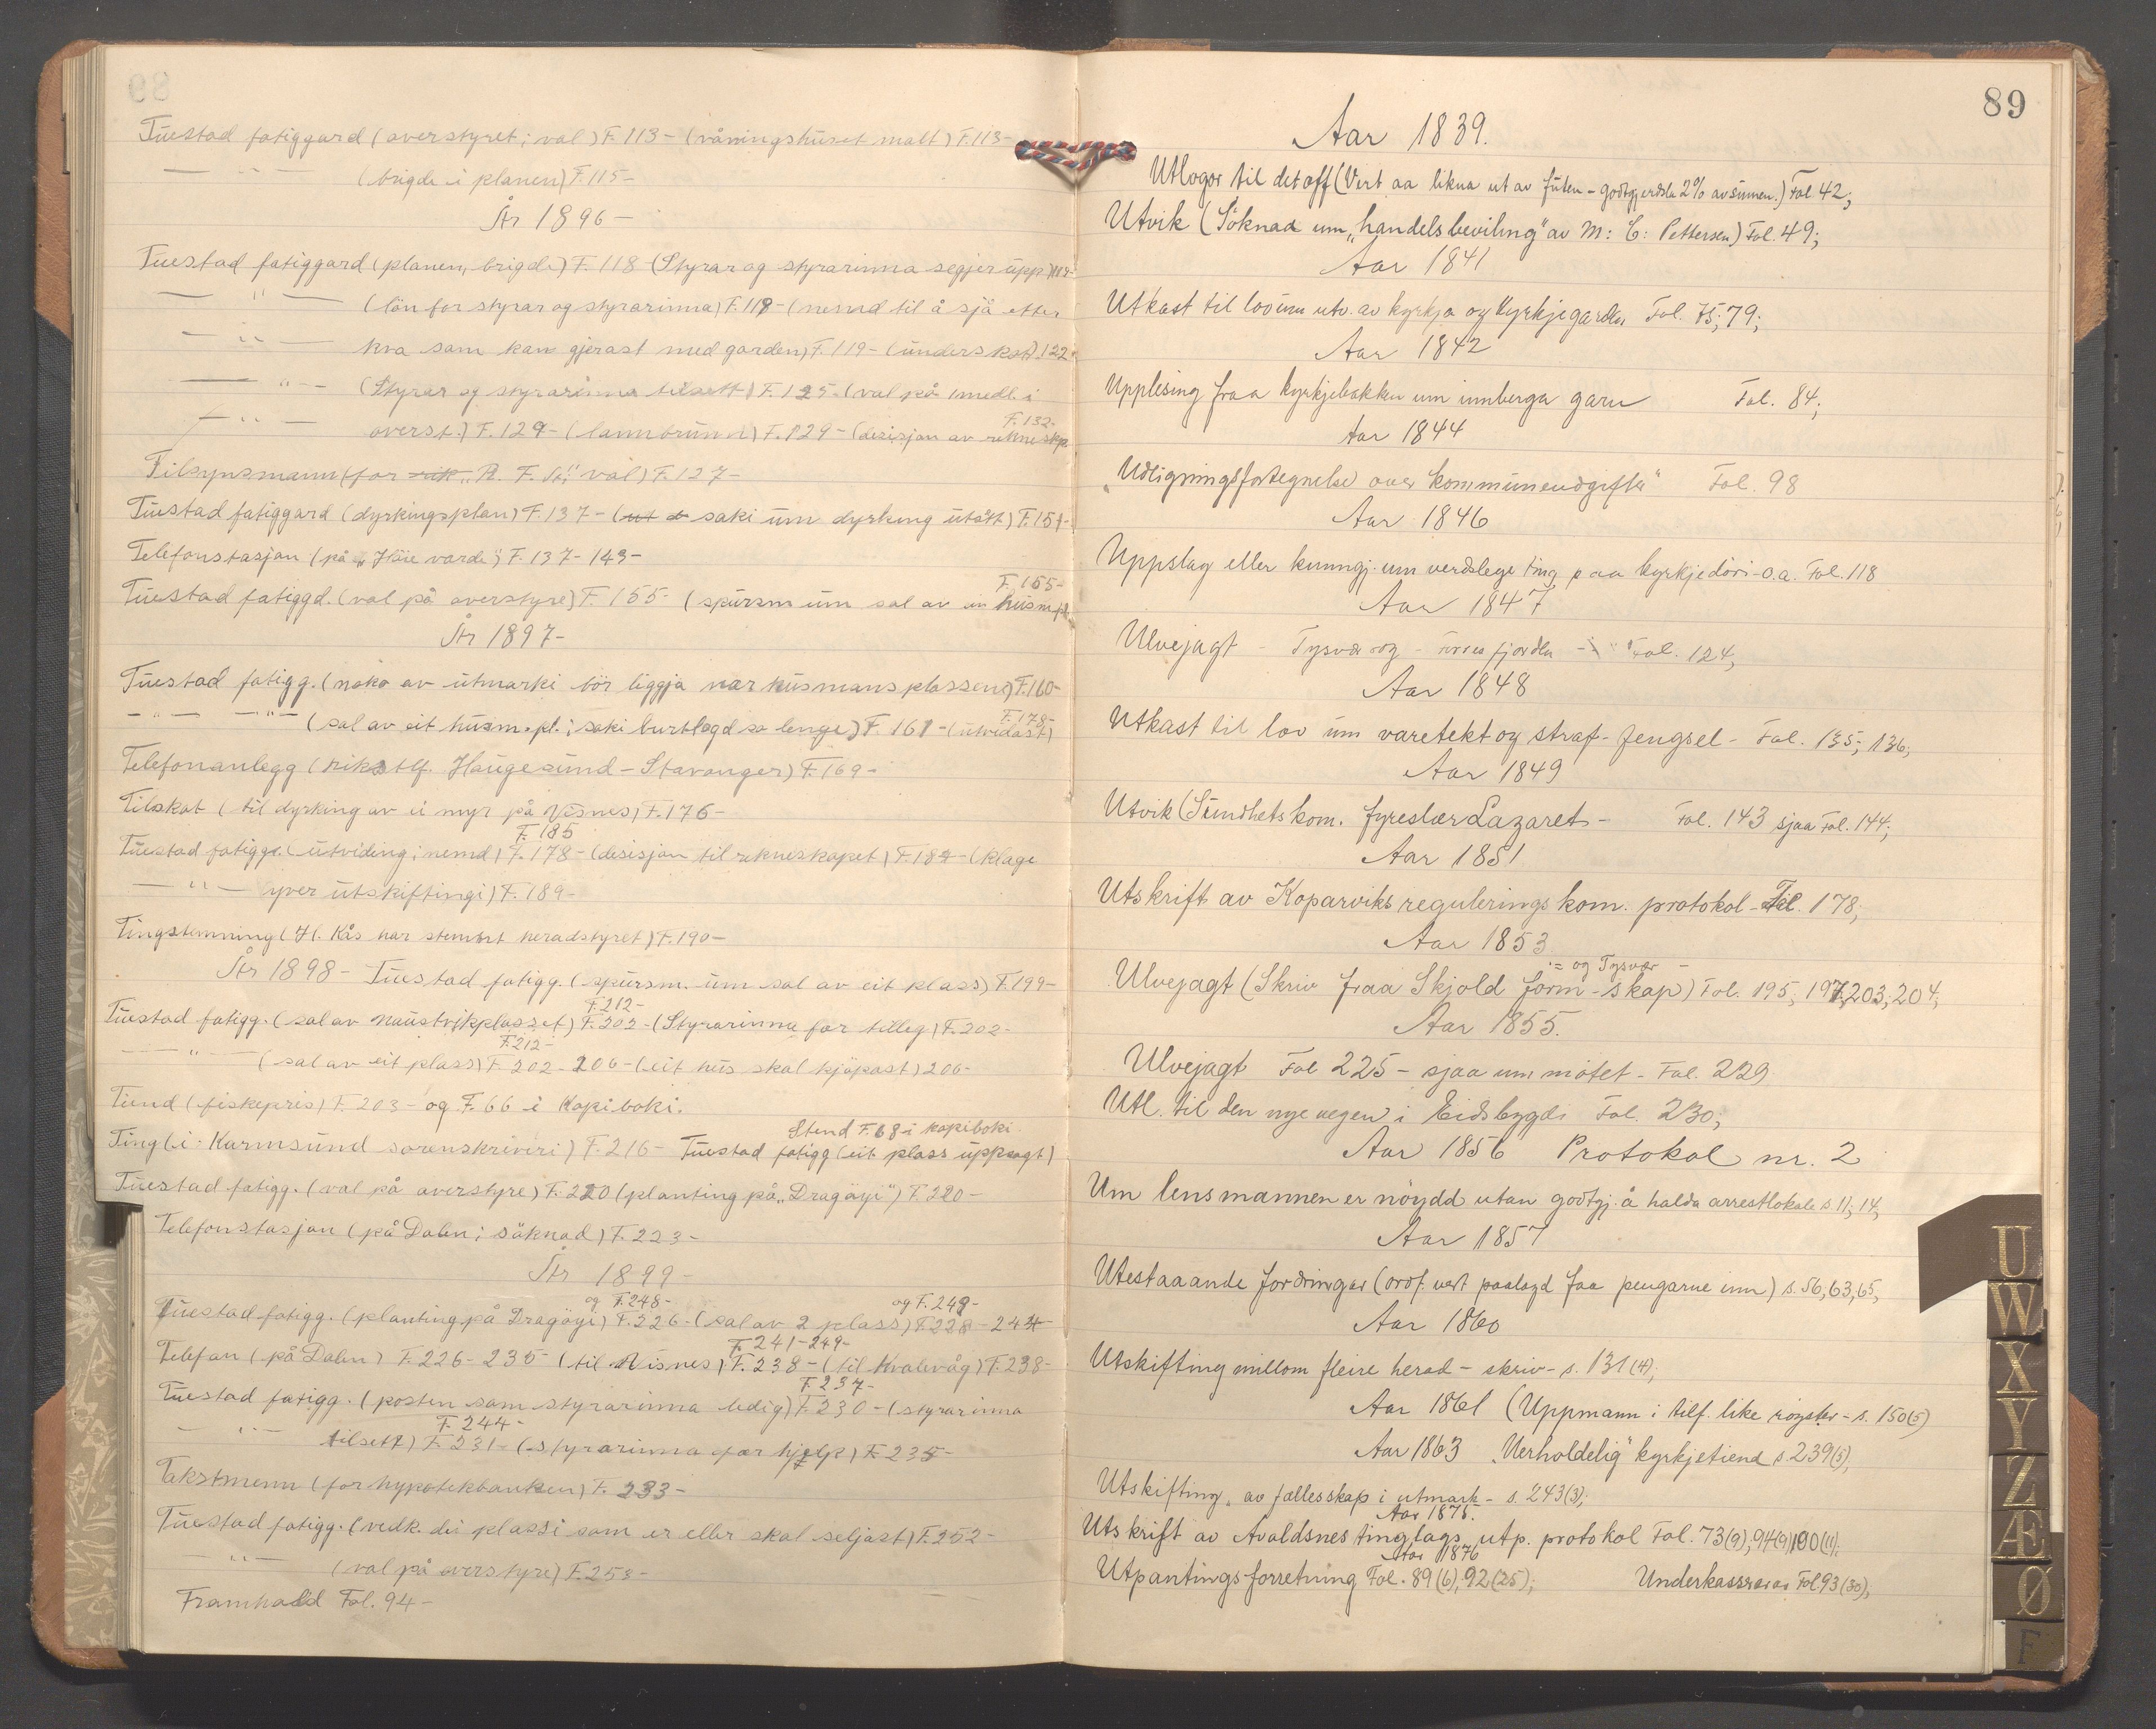 Tuestad fatiggard (overstyret; val) F. 113- (våningshuset malt) F. 113-
— " — (brigde i planen) F. 115-
År 1896-
Tuestad fatiggard (planen, brigde) F. 118 (Styrar og styrarinna segjer upp)
— " — (lön for styrar og styrarinna) F. 118- (nemd til å sjå etter
— " — kva som kan gjerast med garden) F. 119- (underskot) 122-
— " — (Styrar og styrarinna tilsett) F. 125- (val på 1 medl. i
F. 132-
— " — overst.) F. 129- (lannbrunn) F. 129- (desisjon av rekneskp
Tilsynsmann (for "R. F. St." val) F. 127-
Tuestad fatiggard (dyrkingsplan) F. 137- (saki um dyrking utsett) F. 151-
Telefonstasjon (på "Höievarde") F. 137-143-
F. 155-
Tuestad fatiggd. (val på overstyre) F. 155- (spursm um sal av ein husm.pl.
År 1897-
Tuestad fatigg. (noko av utmarki bör liggja nær husmansplassene) F. 160-
F. 178-
— " — — " — (sal av eit husm.pl.; saki burtlagd so lenge) F. 161- (utvidast)
Telefonanlegg (rikstlf. Haugesund-Stavanger) F. 169-
Tilskot (til dyrking av ei myr på Visnes) F. 176-
F. 185
Tuestad fatigg. (utviding; nemd) F. 178- (desisjon til rekneskapet) F. 182- (klage
— " — yver utskiftingi) F. 189-
Tingstemning (H. Kås har stemnt heradstyret) F. 190-
År 1898- Tuestad fatigg. (spursm. um sal av eit plass) F. 199-
F. 212-
Tuestad fatigg. (sal av Naustvikplasset) F. 202- (Styrarinna før tilleg) F. 202-
F. 212-
— " — (sal av eit plass) F. 202-206- (eit hus skal kjöpast) 206-
Tiend (fiskepris) F. 203- og F. 66 i Kopiboki.
Stend F. 68 i kopiboki
Ting (i Karmsund sorenskriveri) F. 216- Tuestad fatigg (eit plass uppsagt)
Tuestad fatigg. (val på overstyre) F. 220 (planting på "Dragöyi") F. 220-
Telefonstasjon (på Dalen; söknad) F. 223-
År 1899-
og F. 248- og F. 249-
Tuestad fatigg. (planting på Dragöyi) F. 226- (sal av 2 plass) F. 228-244-
F. 241-249-
Telefon (på Dalen) F. 226-235- (til Visnes) F. 238- (til Kvalavåg) F. 238-
F. 237-
Tuestad fatigg. (posten som styrarinna ledig) F. 230- (styrarinna
F. 244-
— " — tilsett) F. 231- (styrarinna fær hjelp) F. 235-
Takstmenn (for hypotekbanken) F. 233-
Tuestad fatigg. (vedk. dei plassi som er eller skal seljast) F. 252-
— " — (val på overstyre) F. 253-
Framhald Fol. 94-
89
Aar 1839.
Utlogor til det off (Vert aa likna ut av futen - godtgjerdsla 2% av sumen.) Fol 42;
Utvik (Söknad um "handelsbeviling" av M: C: Pettersen) Fol. 49;
Aar 1841
Utkast til lov um utv. av kyrkja og kyrkjegardar Fol. 75; 79;
Aar 1842
Upplesing fraa kyrkjebakken um innberga garn Fol. 84;
Aar 1844
"Udligningsfortegnelse over kommuneudgifter" Fol. 98
Aar 1846
Uppslag eller kunngj. um verdslege ting paa kyrkjedöri - o.a. Fol. 118
Aar 1847
Ulvejagt - Tysvær og - fjorden - Fol. 124,
Aar 1848
Utkast til lov um varetekt og straf-fengsel - Fol. 135; 136;
Aar 1849
Utvik (Sundhetskom. fyreslær Lazaret - Fol. 143 sjaa Fol. 144;
Aar 1851
Utskrift av Koparviks regulerings kom. protokol - Fol. 178;
Aar 1853
og Tysvær -
Ulvejagt (Skriv fraa Skjold form-skap) Fol. 195, 197, 203, 204,
Aar 1855.
Ulvejagt Fol 225 - sjaa um mötet - Fol. 229
Utl. til den nye vegen i Eidsbygdi Fol. 230;
Aar 1856 Protokol nr. 2
Um lensmannen er nöydd utan godtgj. å halda arrestlokale s. 11; 14;
Aar 1857
Utestaaande fordringar (ordf. vert paalagd faa pengarne inn) s. 56, 63, 65,
Aar 1860
Utskifting millom fleire herad - skriv - s. 131 (4);
Aar 1861 (Uppmann i tilf. like röyster - s. 150(5)
Aar 1863 "Uerholdelig" kyrkjetiend s. 239(5),
Utskifting av fællesskap i utmark - s. 243(3);
Aar 1875.
Utskrift av Avaldsnes tinglags utp. protokol Fol. 73(9), 94(9) 100(11).
Aar 1876
Utpantingsforretning Fol. 89(6), 92(25); Underkasserar Fol 93 (30),
U
W
X
Y
Z
Æ
Ø
F